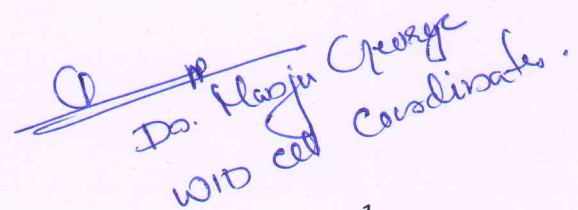 Dr. Manju George
WID cell Coordinator.
1